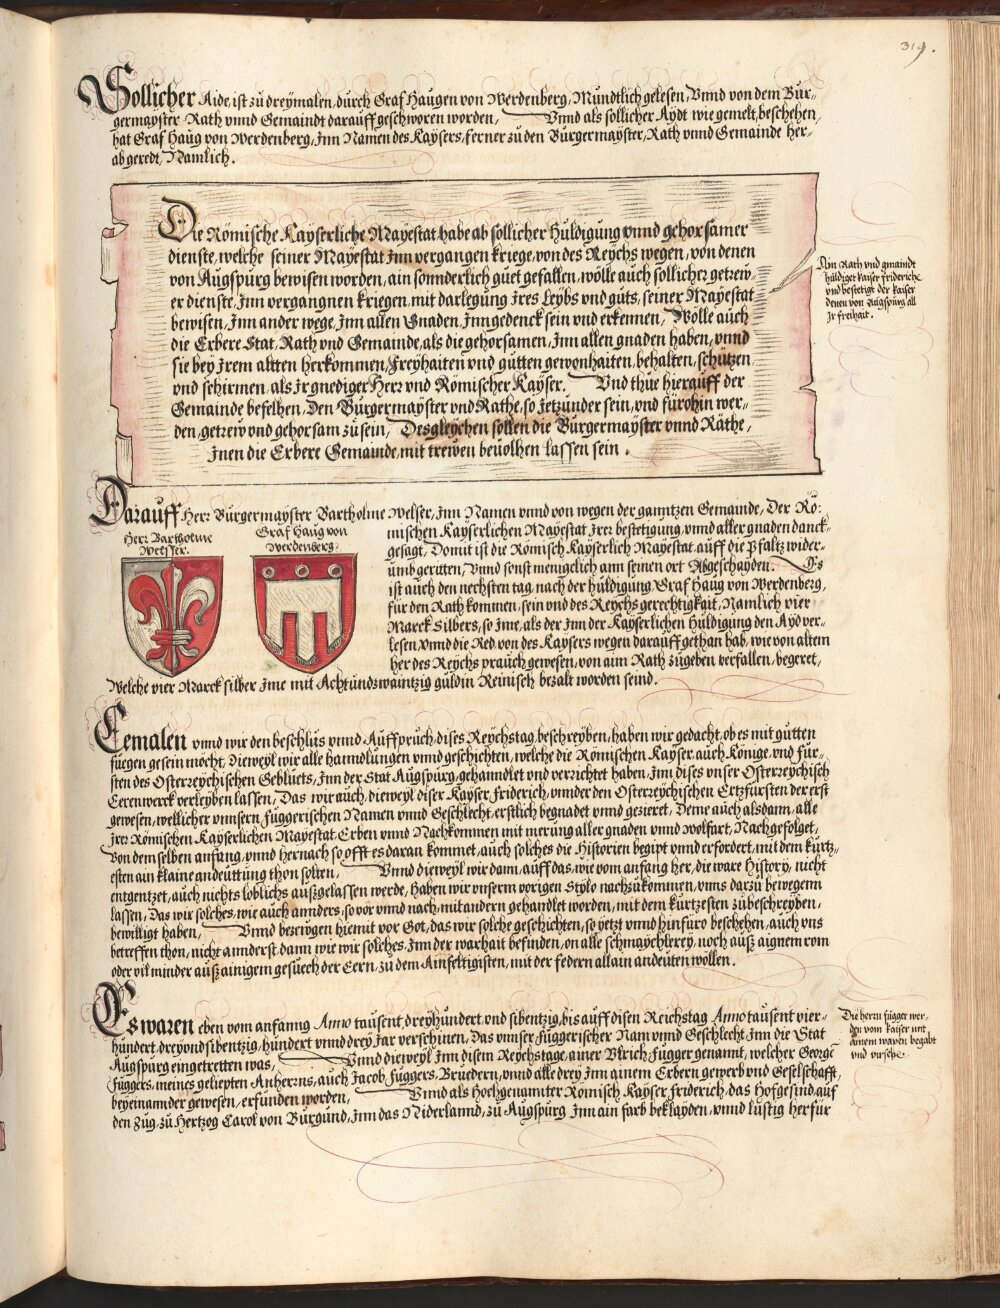 319.
Sollicher Aide, ist zů dreÿmalen, durch Graf Haugen von Werdenberg, Mundtlich gelesen, Vnnd von dem Bur-
germaÿster Rath vnnd Gemaindt darauff geschworen worden, Vnnd als sollicher Aÿdt wie gemelt, beschehen,
hat Graf Haug von Werdenberg, Inn Namen des Kaÿsers, ferner zů den Bürgermaÿster, Rath vnnd Gemainde her-
ab geredt, Namlich.
Die Römische Kaÿserliche Maÿestat, habe ab sollicher Huldigung vnnd gehorsamer
dienste, welche seiner Maÿestat Inn vergangen kriege, von des Reÿchs wegen, von denen
von Augspurg bewisen worden, ain sonnderlich guet gefallen, wölle auch sollicher getrew-
er dienste, Inn vergangnen kriegen, mit darlegung Ires Leÿbs vnd guts, seiner Maÿestat
bewisen, Inn ander wege, Inn allen Gnaden, Inngedenck sein vnd erkennen, Wölle auch
die Erbere Stat, Rath vnd Gemainde, als die gehorsamen, Inn allen gnaden haben, vnnd
sie beÿ Irem altten herkommen, Freÿhaiten vnd gutten gewonhaiten, behalten, schützen
vnd schirmen, als Ir gnediger Herr vnd Römischer Kaÿser. Vnd thue hierauff der
Gemainde befelhen, Den Bürgermaÿster vnd Rathe, so Jetzunder sein, vnd fürohin wer-
den, getrew vnd gehorsam zů sein, Desgleÿchen sollen die Bürgermaÿster vnnd Räthe,
Inen die Erbere Gemainde, mit trewen beuolhen lassen sein.
Ain Rath vnd gmaindt
huldiget kaiser friderich
vnd bestetigt der kaiser
denen von Augspurg all
Ir freihait.
Darauff Herr Bürgermaÿster Bartholme Welser, Inn Namen vnnd von wegen der ganntzen Gemainde, Der Rö-
mischen Kaÿserlichen Maÿestat Irer bestettigung, vnnd aller gnaden danck-
gesagt, Domit ist die Römisch Kaÿserlich Maÿestat auff die Pfaltz wider-
umb geritten, Vnnd sonst meniglich ann seinen ort Abgeschaÿden. Es
ist auch den nechsten tag, nach der huldigung, Graf Haug von Werdenberg,
für den Rath kommen, sein vnd des Reÿchs gerechtigkait, Namlich vier
Marck Silbers, so Ime, als der Inn der Kaÿserlichen Huldigung den Aÿd ver-
lesen, vnnd die Red von des Kaÿsers wegen darauff gethan hab, wie von altem
her des Reÿchs prauch gewesen, von aim Rath zůgeben verfallen, begeret,
Welche vier Marck silber Ime mit Achtundzwaintzig guldin Reinisch bezalt worden seind.
Herr Bartholme
Welsser.
Graf Haug von
Werdenberg.
Eemalen vnnd wir den beschlus vnnd Auffpruch dises Reÿchstag, beschreÿben, haben wir gedacht, ob es mit gutten
fuegen gesein möcht, Dieweÿl wir alle hanndlungen vnnd geschichten, welche die Römischen Kaÿser, auch Könige, vnd für-
sten des Osterreÿchischen Gebluets, Inn der Stat Augspurg, gehanndlet vnd verrichtet haben, Inn dises vnser Osterreÿchisch
Eerenwerck verleÿben lassen, Das wir auch, dieweÿl diser Kaÿser, Friderich, vnnder den Osterreÿchischen Ertzfürsten der erst
gewesen, wellicher vnnsern Fuggerischen Namen vnnd Geschlecht, erstlich begnadet vnnd gezieret, Deme auch alsdann, alle
Irer Römischen Kaÿserlichen Maÿestat Erben vnnd Nachkommen mit merung aller gnaden vnnd wolfart, Nachgefolget,
Von demselben anfang, vnnd hernach so offt es daran kommet, auch solches die Historien begipt vnnd erfordert, mit dem kurtz-
esten ain klaine andeuttung thon solten, Vnnd dieweÿl wir dann, auff das, wie vom anfang her, die ware Historÿ, nicht
entgentzet, auch nichts löblichs außgelassen werde, Haben wir vnserm vorigen Stÿlo nachzůkommen, vnns darzu bewegenn
lassen, Das wir solches, wie auch annders, so vor vnnd nach, mit andern gehandlet worden, mit dem kurtzesten zůbeschreÿben,
bewilligt haben, Vnnd bezewgen hiemit vor Got, das wir solche geschichten, so ÿetzt vnnd hinfüro beschehen, auch vns
betreffen thon, nicht annderst, dann wie wir solches, Inn der warhait befinden, on alle schmaÿchlereÿ, noch auß aignem rom
oder vil minder auß ainigem gesuech der Eern, zů dem Ainfeltigisten, mit der federn allain andeuten wöllen.
Es waren eben vom anfanng Anno tausent, dreÿhundert, vnd sibentzig, bis auff disen Reichstag Anno tausent vier-
hundert, dreÿ vnd sibentzig, hundert vnnd dreÿ Jar verschinen, Das vnnser Fuggerischer Nam vnnd Geschlecht, Inn die Stat
Augspurg eingetretten was, Vnnd dieweÿl Inn disem Reÿchstage, ainer Vlrich Fugger genannt, welcher George
Fuggers, meines geliepten Anherrns, auch Jacob Fuggers, Brüedern, vnnd alle dreÿ Inn ainem Erbern gewerb vnd Geselschafft,
beÿeinannder gewesen, erfunden worden, Vnnd als Hochgenannter Römisch Kaÿser, Friderich, das Hofgesind, auf
den Zug, zů Hertzog Carol von Burgund, Inn das Niderlannd, zů Augspurg Inn ain farb beklaÿden, vnnd lustig herfür
Die herrn fugger wer-
den vom kaiser mit
ainem wapen begabt
vnd versehe.